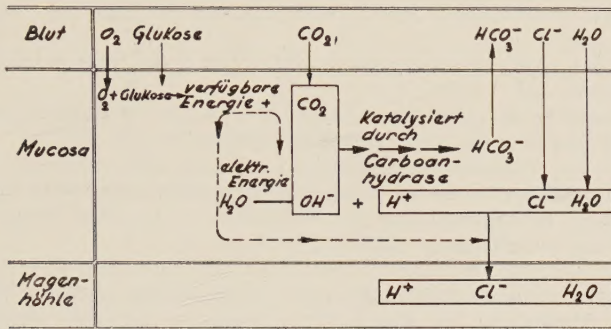 Blut O₂ Glukose CO₂, HCO₃⁻ Cl⁻ H₂O
Mucosa
O₂+Glukose → verfügbare
Energie +
CO₂
Katalysiert
durch
Carboan-
hydrase
HCO₃⁻
elektr.
Energie
H₂O OH⁻ + H⁺ Cl⁻ H₂O
Magen-
höhle
H⁺ Cl⁻ H₂O